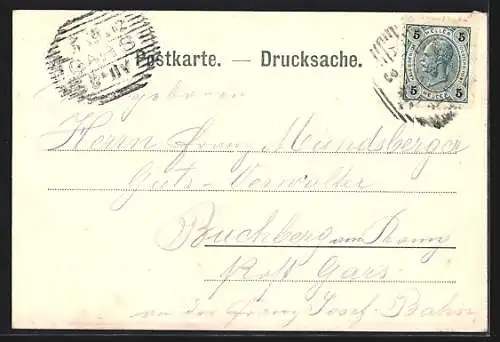 Postkarte. — Drucksache.
5 HELLER 5
5 5
GARS
geboren
Herrn Franz Mündsberger
Guts-Verwalter
Buchberg am Kamp
Post Gars
an der Franz Josef-Bahn